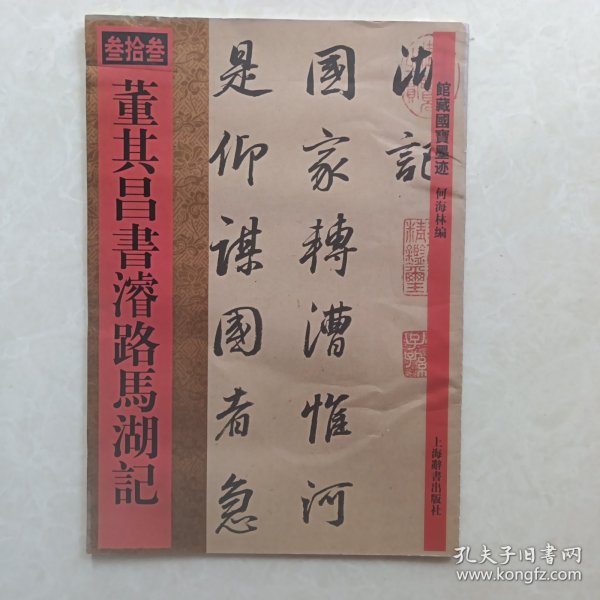 叁拾叁
董其昌書濬路馬湖記
湖記
國家轉漕惟河
是仰謀國者急
館藏國寶墨迹
何海林编
上海辭書出版社
孔夫子旧书网
www.kongfz.com